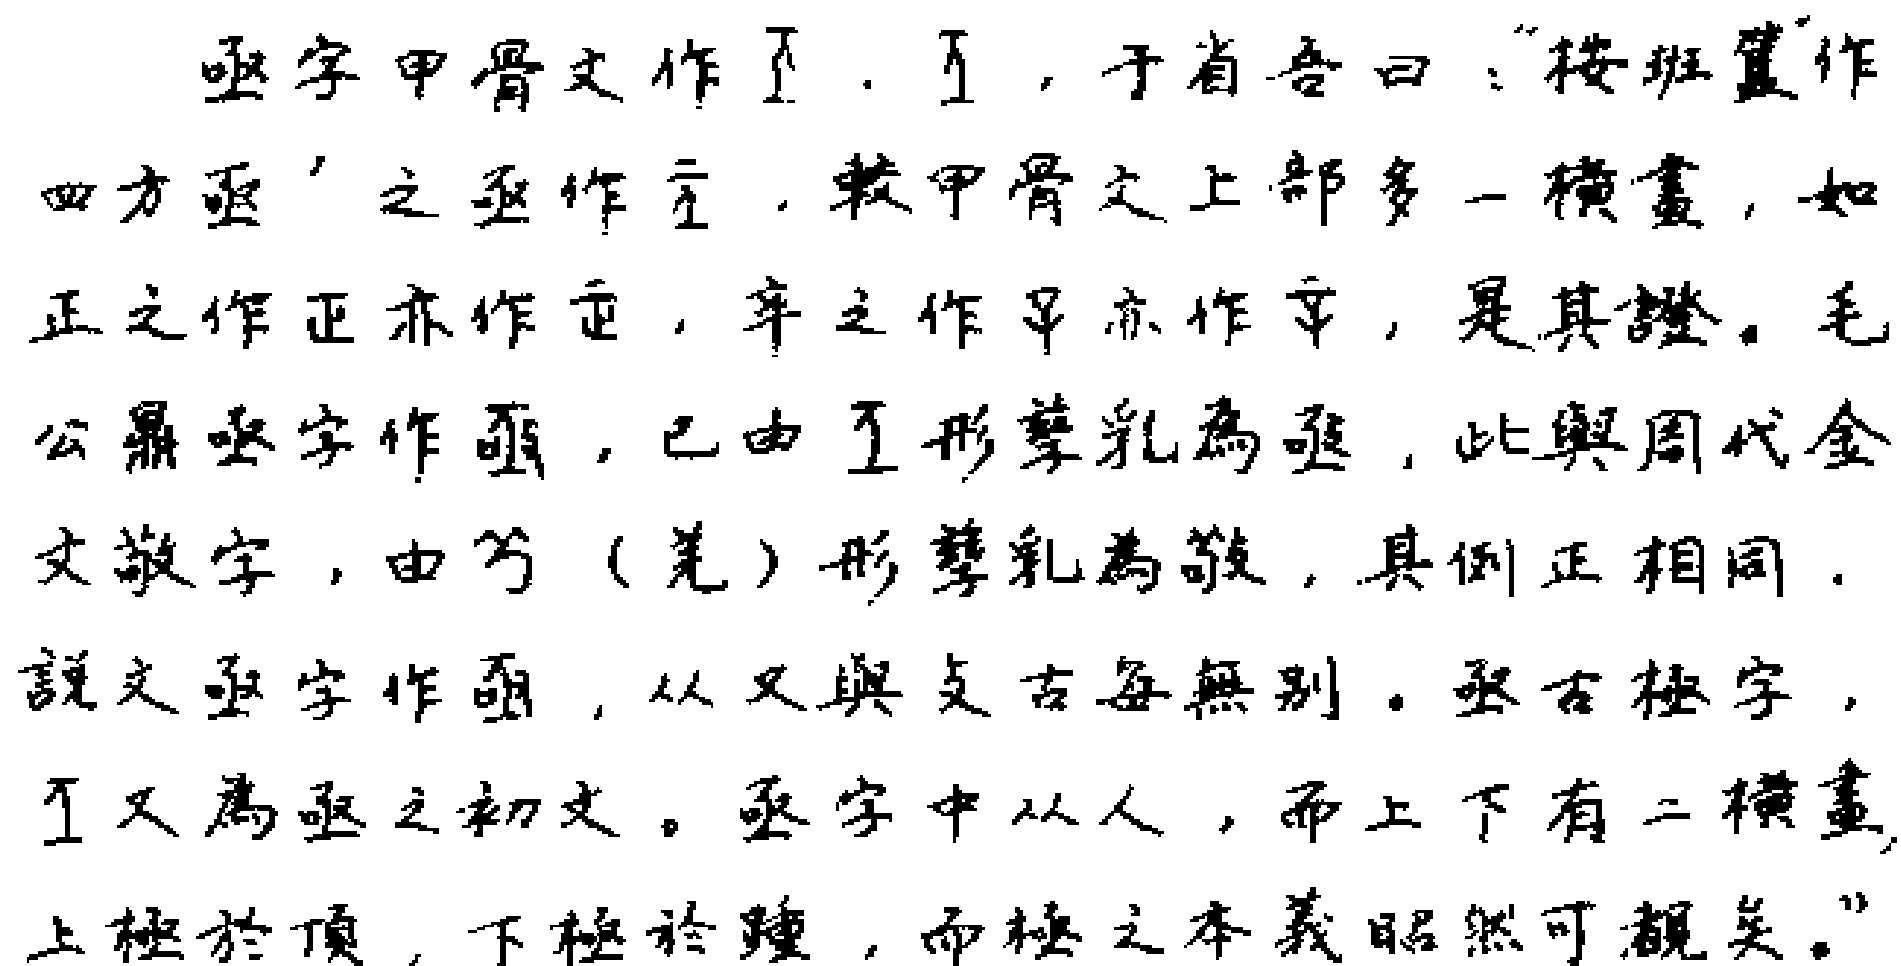 亟字甲骨文作、,于省吾曰:“按班簋‘作
四方亟’之亟作,較甲骨文上部多一橫畫,如
正之作正亦作,辛之作亦作辛,是其證。毛
公鼎亟字作,已由形孳乳為亟,此與周代金
文敬字,由(羌)形孳乳為敬,其例正相同.
說文亟字作,从又與攴古每無別.亟古極字,
又為亟之初文。亟字中从人,而上下有二橫畫,
上極於頂,下極於踵,而極之本義昭然可覩矣。”